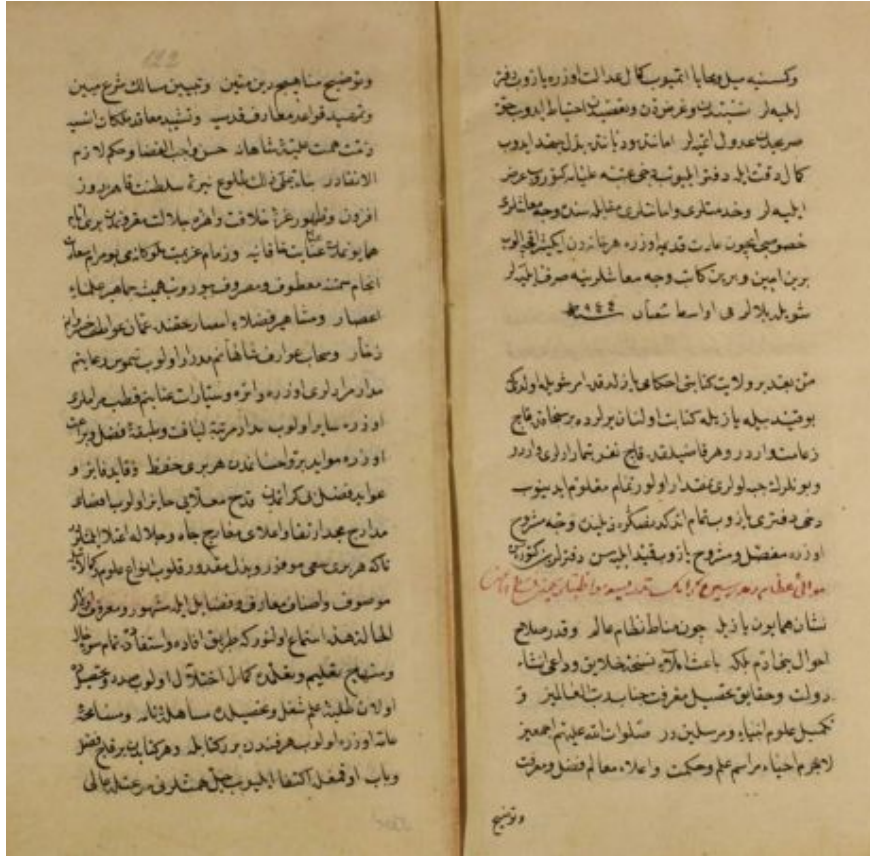 وكسنه‌يه ميل ومحابا اتميوب كمال عدالت اوزره يازوب دفتر
ايليه‌لر وغرضدن وتعصبدن احتياط ايدوب حق
صريحدن عدول اتميه‌لر امانتى وديانتى بذل جهد ايدوب
كمال دقت ايله دفتر ايليوب عتبه عليامه كتوروب عرض
ايليه‌لر وخدمتلرى وامانتلرى مقابله‌سنده وجه معاشلرى
خصوصيچون عادت قديمه اوزره هر خانه‌دن ايكيشر اقچه الوب
برين امين وبرين كاتب وجه معاشلرينه صرف ايليه‌لر
شويله بيله‌لر فى اواسط شعبان سنه ٩٤٤
من بعد بر ولايت كتابتى احكامى يازلدقده امر شويله اولدى كى
بو قيد بيله يازيله كتابت اولنان يرلرده بر سنجاقده قاچ
زعامت واردر وهر قاضيلقده قاچ نفر تيمار ارلرى واردر
وبونلرك جبه‌لولرى نمقدار اولور تمام معلوم ايدينوب
دخى دفترى يازوب تمام اتدكدنصكره ذيلنده وجه مشروح
اوزره مفصل ومشروح يازوب قيد ايليه‌سن دفترلرين كتوره‌سن
موالئ عظام ومدرسين كرامك
نشان همايون يازيله چون مناط نظام عالم وقدر صلاح
احوال بنى آدم بلكه باعث املاء نسخهٔ خلايق وداعئ انشاء
دولت وحقايق تحصيل معرفت جناب رب العالمين و
تكميل علوم انبياء ومرسلين در صلوات الله عليهم اجمعين
لاجرم احياء مراسم علم وحكمت واعلاء معالم فضل ومعرفت
وتوضيح
122
وتوضيح مناهج دين متين وتبيين مسالك شرع مبين
وتمهيد قواعد معارف قدسيه وتشييد معاقد ملكات انسيه
ذمت همت عليهٔ شاهانه حسن واجب القضا وحكم لازم
الانقاد در بناء على ذلك طلوع نير سلطنت قاهره روز
افزون وظهور غرهٔ خلافت وباهره جلالت مقرونمدن برى
همايونمده عنايت خاقانيه وزمام عزيمت ملوكانه‌مى بو مرام سعادت
انجام سمتنه معطوف ومصروف بيوروب هميشه جماهير علماء
اعصار ومشاهير فضلاء امصار حقنده عمان عواطف خسروانه
زخار وسحاب عوارف شاهانه‌م مدرار اولوب شموس رعايتم
مدار مرادلرى اوزره دائره وسيارات عنايتم قطب مراملرى
اوزره ساير اولوب مدار مرتبهٔ لياقت وطبقهٔ فضل وبراعت
اوزره موايد بر واحسانمدن هربرى حفظ وفايده فايز و
عوايد فضل بى كرانمدن قدح معلايى حايز اولوب اقصاى
مدارج مجده ارتقا واعلاى معارج جاه وجلاله اعتلا ايتمشلردر
تا كه هربرى سعى موفور وبذل مقدور قلوب انواع علوم وكمالاتله
موصوف واصناف معارف وفضايل ايله مشهور ومعروف اوله‌لر
الحالة هذه استماع اولنور كه طريق افاده واستفاده تمام سوخته
ومنهاج تعليم وتعلمده كمال اختلال اولوب صدد تحصيلده
اولان طلبهٔ علم شغل وتحصيلده مساهلهٔ تامه ومسامحهٔ
عامه اوزره اولوب هر فندن بر كتابله وهر كتابدن بر قاچ فصل
وباب اوقمغله اكتفا ايليوب جل همتلرى مرعئ عالى